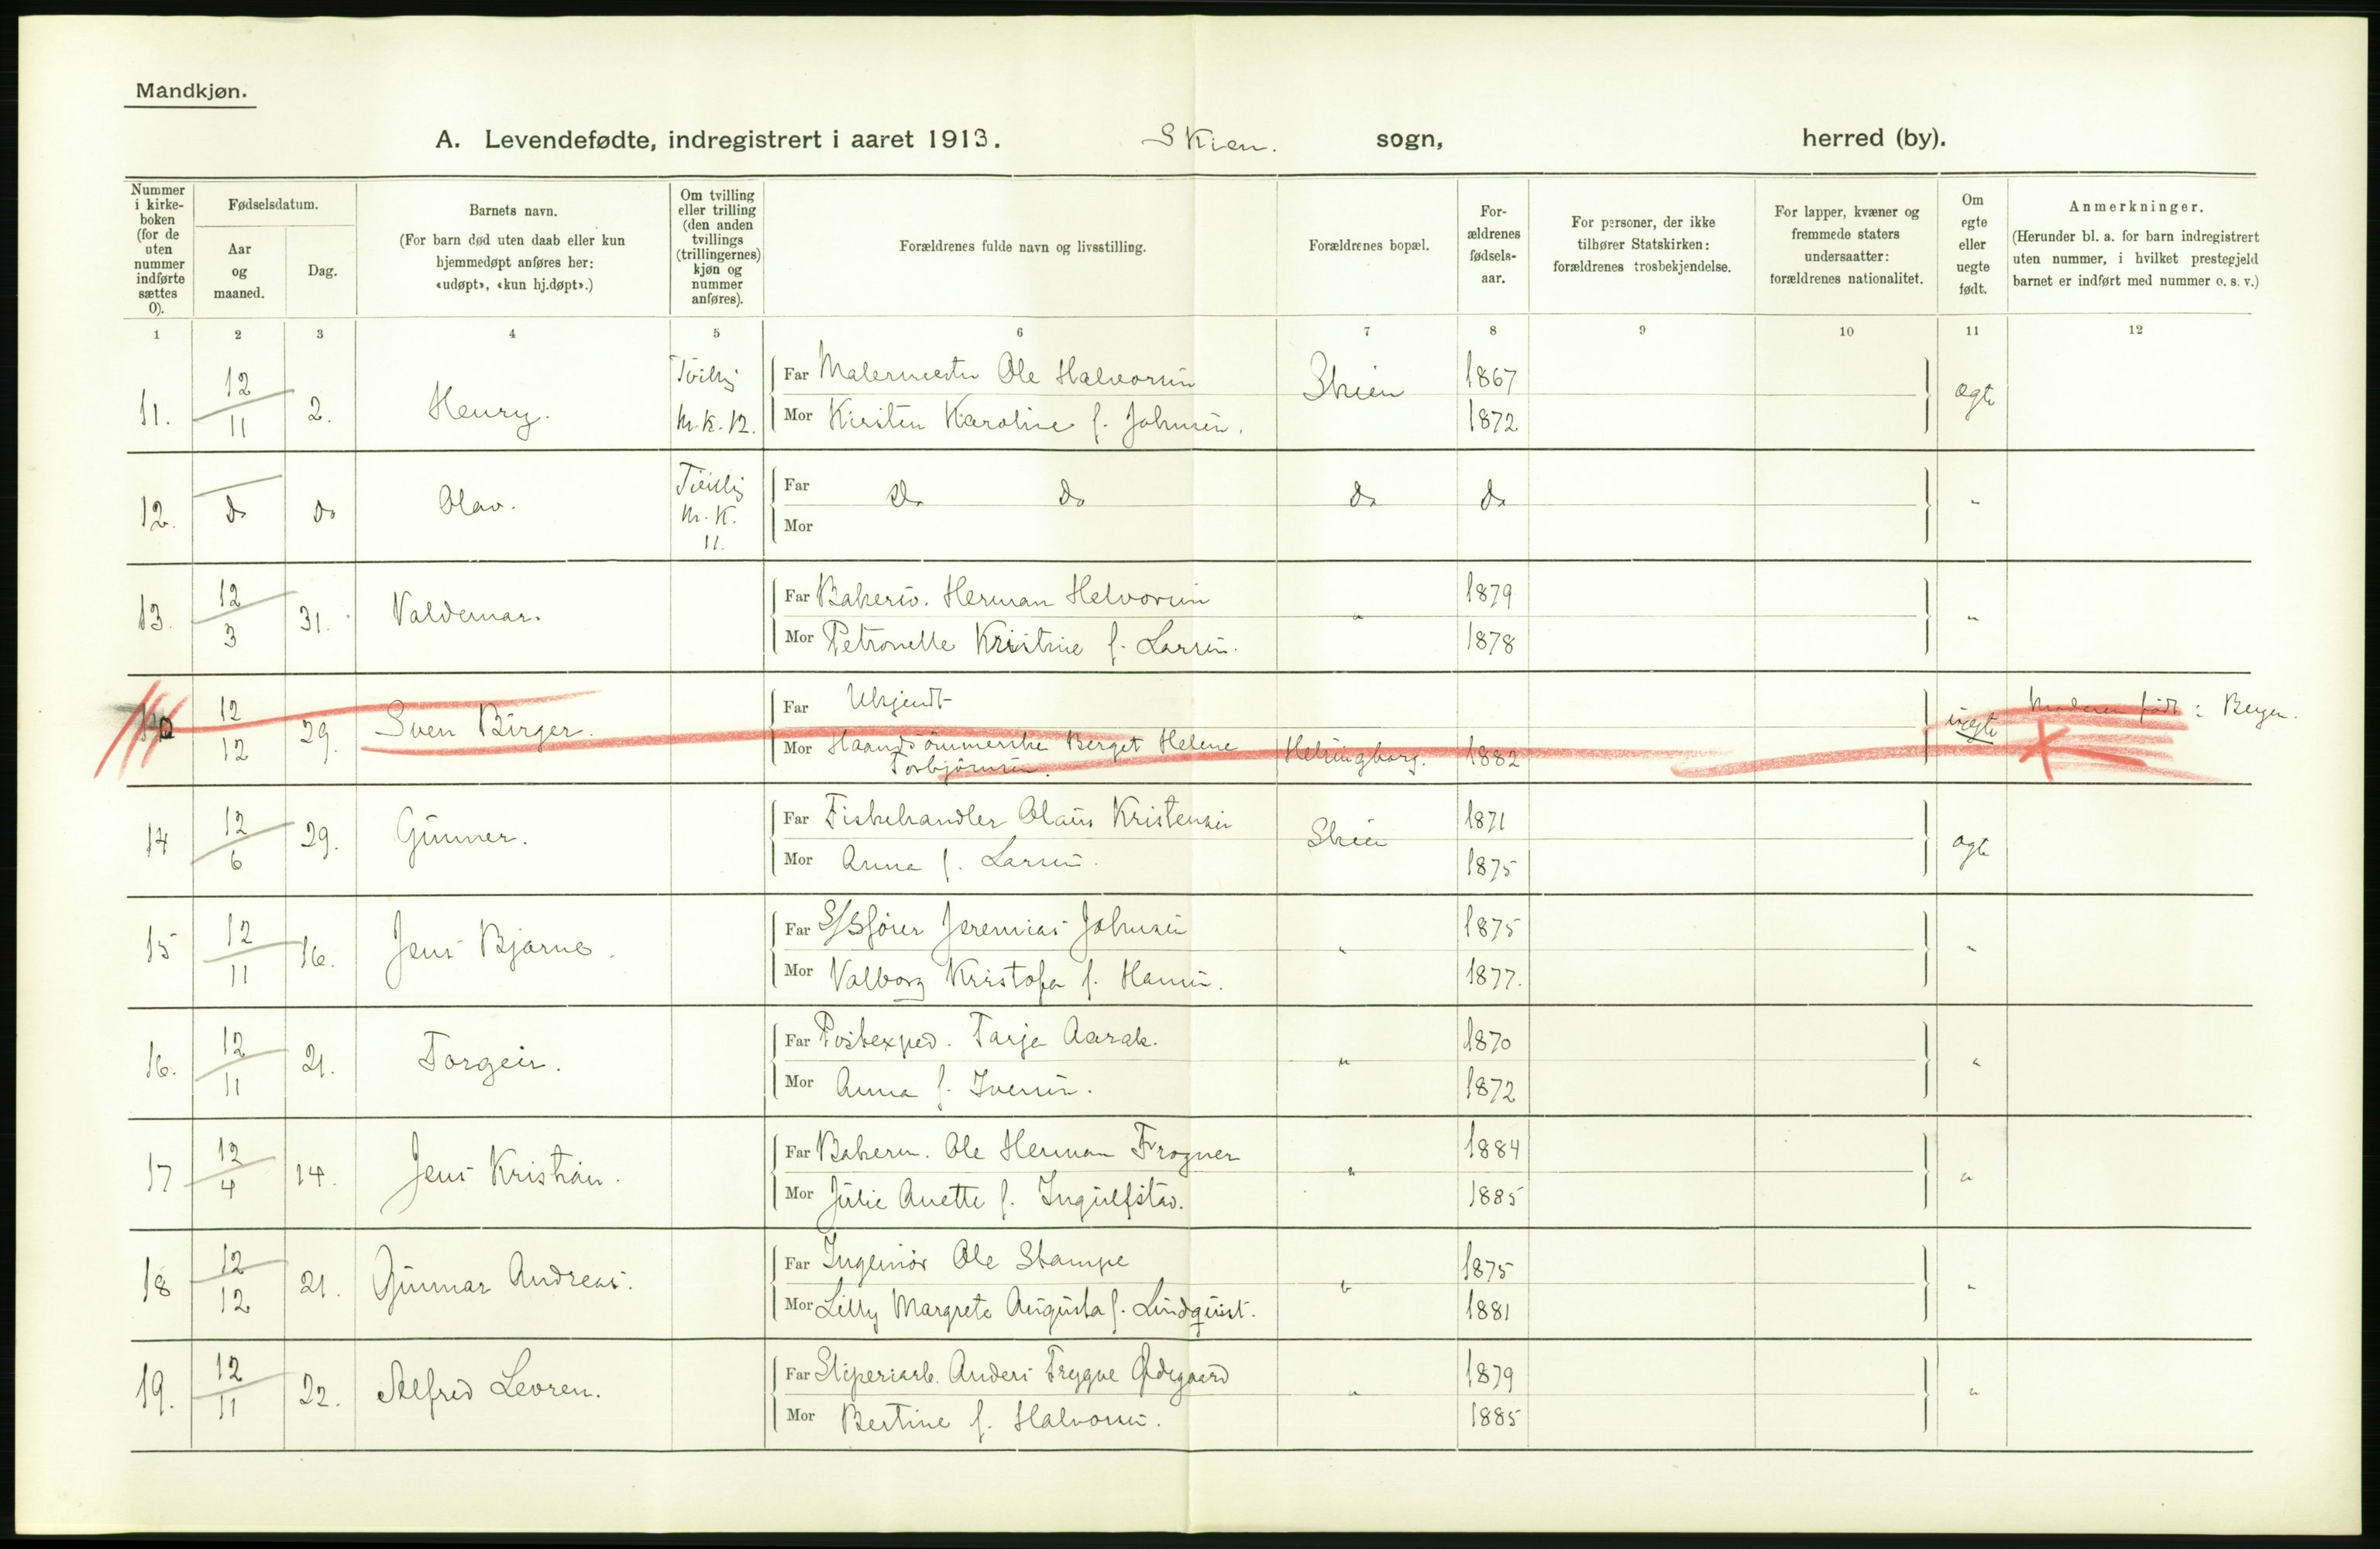 Mandkjøn.
A. Levendefødte, indregistrert i aaret 1913. Skien. sogn, herred (by).
Nummer i kirke-boken (for de uten nummer indførte sættes 0).
Fødselsdatum.
Aar og maaned.
Dag.
Barnets navn.
(For barn død uten daab eller kun hjemmedøpt anføres her: «udøpt», «kun hj.døpt».)
Om tvilling eller trilling (den anden tvillings (trillingernes) kjøn og nummer anføres).
Forældrenes fulde navn og livsstilling.
Forældrenes bopæl.
For-ældrenes fødsels-aar.
For personer, der ikke tilhører Statskirken: forældrenes trosbekjendelse.
For lapper, kvæner og fremmede staters undersaatter: forældrenes nationalitet.
Om egte eller uegte født.
Anmerkninger.
(Herunder bl. a. for barn indregistrert uten nummer, i hvilket prestegjeld barnet er indført med nummer o. s. v.)
1 2 3 4 5 6 7 8 9 10 11 12
11. 12/11 2. Henry. Tvilling M.K. 12. Far Malermester Ole Halvorsen Skien 1867 ægte
Mor Kirsten Karoline f. Johnsen. 1872
12. do do Olav. Tvilling M.K. 11. Far do do do do "
Mor
13. 12/3 31. Valdemar. Far Bakersv. Herman Helvorsen " 1879 "
Mor Petronelle Kristine f. Larsen. 1878
12/12 29. Sven Birger. Far Ukjendt uegte Moderen født: Bergen.
Mor Haandsömmerske Berget Helene Torbjörnsen. Helsingborg. 1882
14 12/6 29. Gunner. Far Fiskehandler Olaus Kristensen Skien 1871 ægte
Mor Anna f. Larsen. 1875
15 12/11 16. Jens Bjarne. Far S/Sfører Jeremias Johnsen " 1875 "
Mor Valborg Kristofa f. Hansen. 1877.
16. 12/11 21. Torgeir. Far Postexped. Tarje Aarak. " 1870 "
Mor Anna f. Iversen. 1872
17 12/4 14. Jens Kristian. Far Bakerm. Ole Herman Frogner " 1884 "
Mor Julie Anette f. Ingulfstad. 1885
18 12/12 21. Gunnar Andreas. Far Ingeniør Ole Stampe " 1875 "
Mor Lilly Margrete Augusta f. Lindquist. 1881
19. 12/11 22. Alfred Levren. Far Sliperiarb. Anders Trygve Ødegaard " 1879 "
Mor Bertine f. Halvorsen. 1885